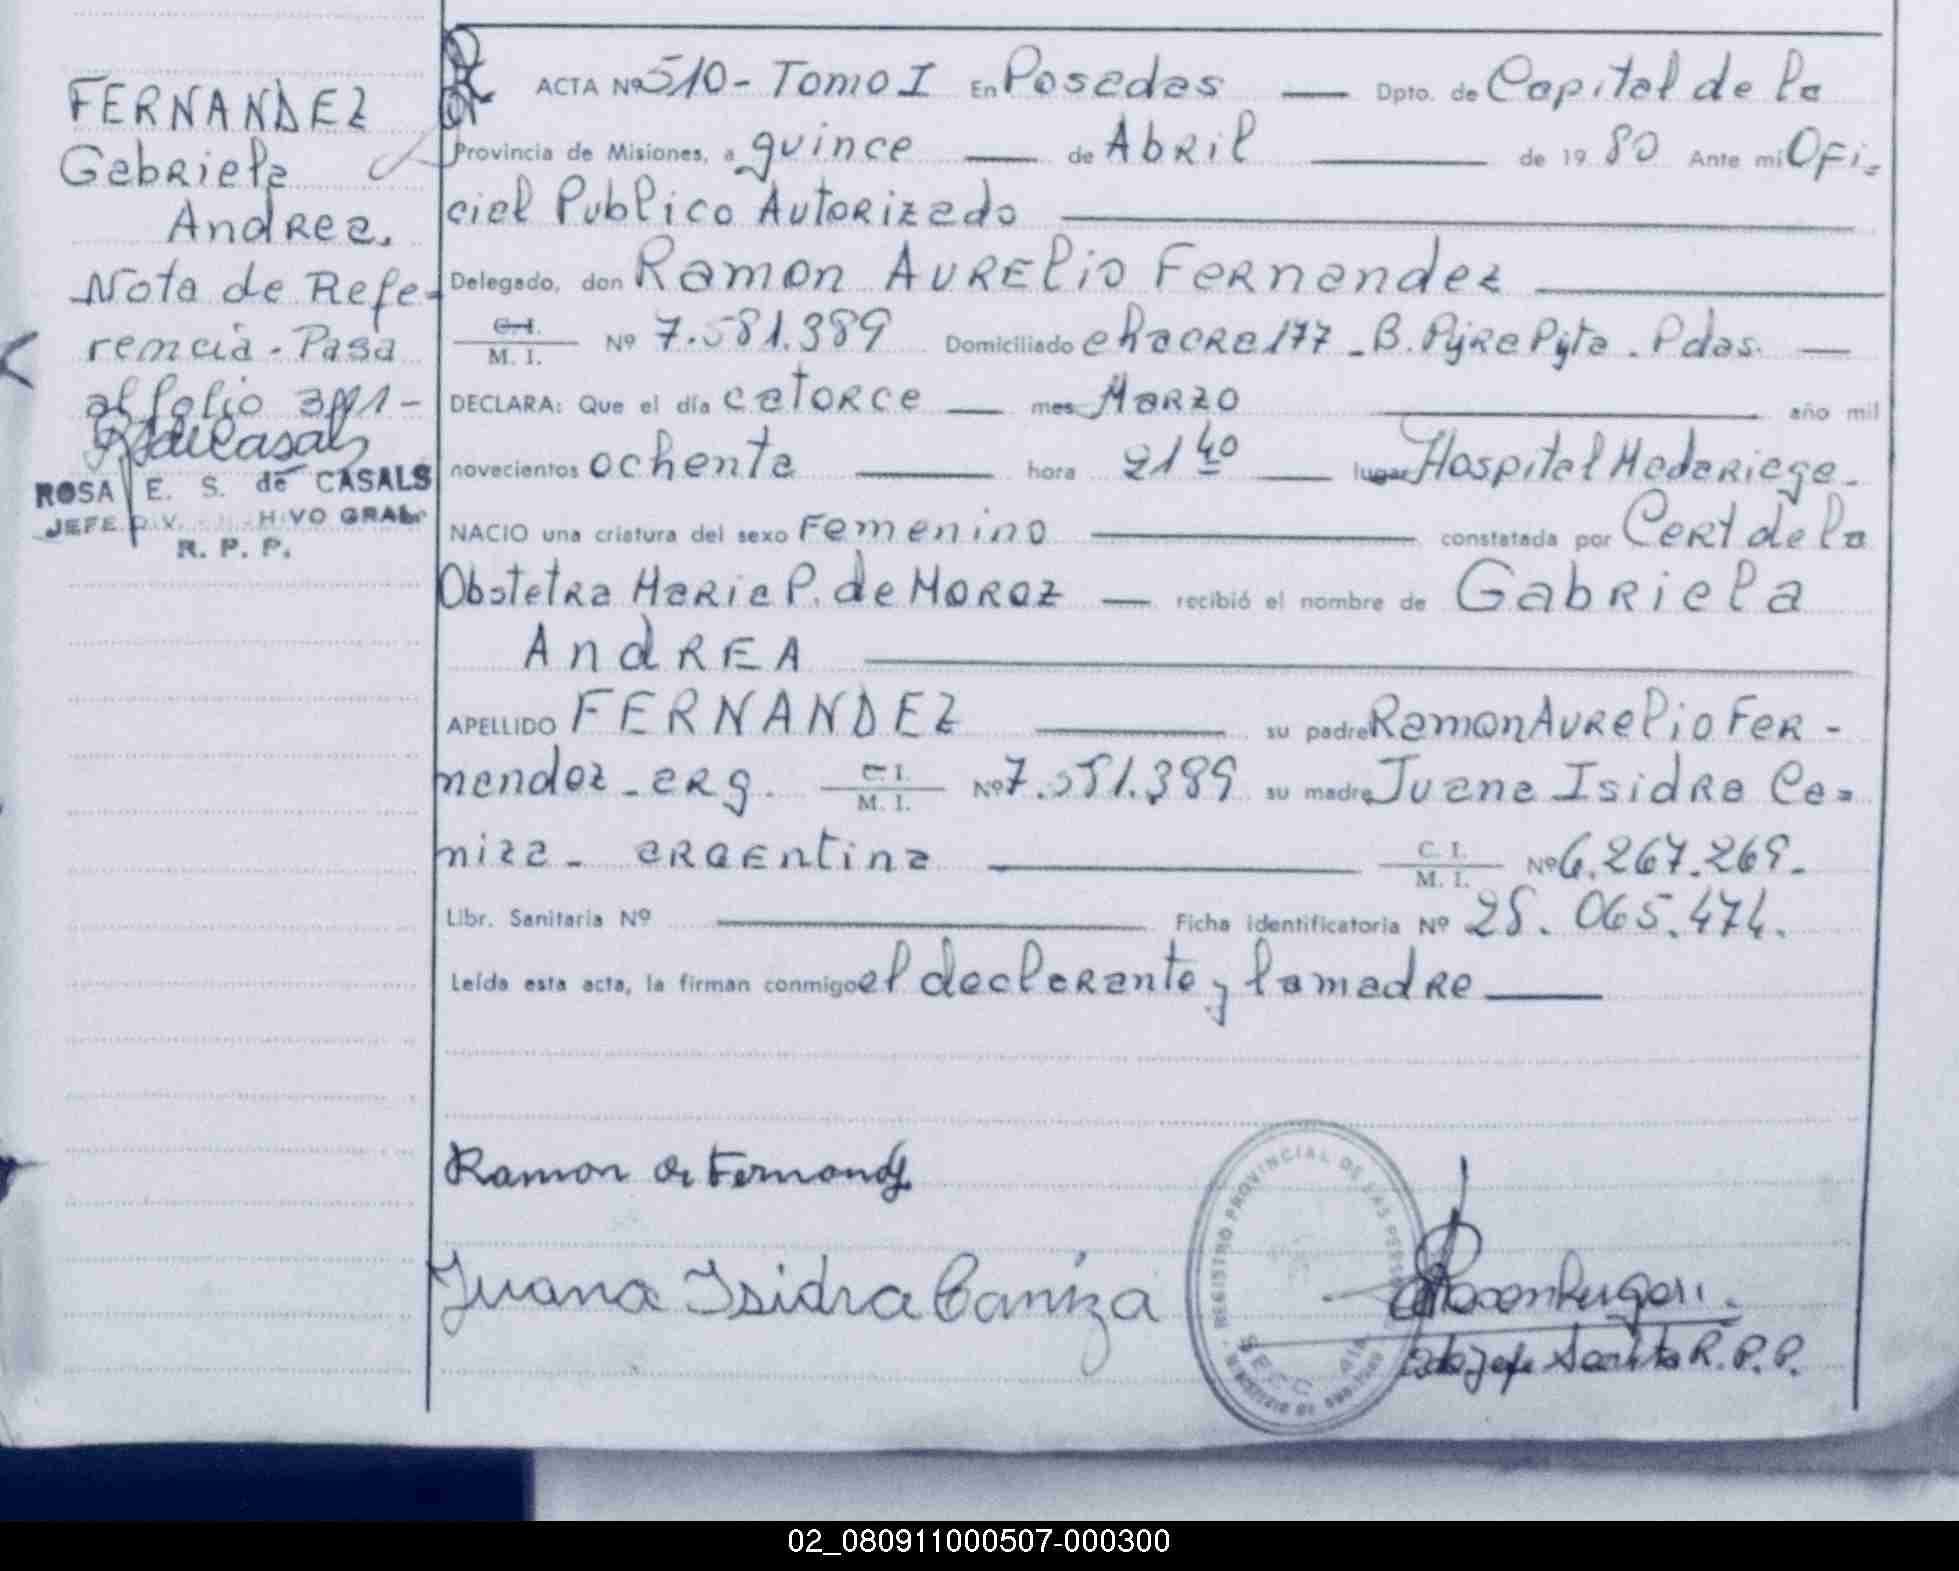 FERNANDEZ
Gabriela
Andrea.
Nota de Refe-
rencia - Pasa
al folio 391-
ROSA E. S. de CASALS
JEFE DIV. HIVO GRAL.
R. P. P.
ACTA Nº 510 - Tomo I En Posadas Dpto. de Capital de la
Provincia de Misiones, a quince de Abril de 1980 Ante mi Ofi-
cial Publico Autorizado
Delegado, don Ramon Aurelio Fernandez
C.I. M. I. Nº 7.581.389 Domiciliado chacra 177 - B. Pyra Pyta. Pdas.
DECLARA: Que el día catorce mes Marzo año mil
novecientos ochenta hora 21 40 lugar Hospital Madariaga-
NACIO una criatura del sexo Femenino constatada por Cert de la
Obstetra Maria P. de Moroz recibió el nombre de Gabriela
Andrea
APELLIDO FERNANDEZ su padre Ramon Aurelio Fer-
nandez - arg. C.I. M. I. Nº 7.581.389 su madre Juana Isidra Ca-
niza - argentina C. I. M. I. Nº 6.267.269.
Libr. Sanitaria Nº Ficha identificatoria Nº 28.065.474.
Leída esta acta, la firman conmigo el declarante y la madre
Ramon A. Fernandez
Juana Isidra Caniza
REGISTRO PROVINCIAL DE LAS PERSONAS
R.P.P.
02_080911000507-000300